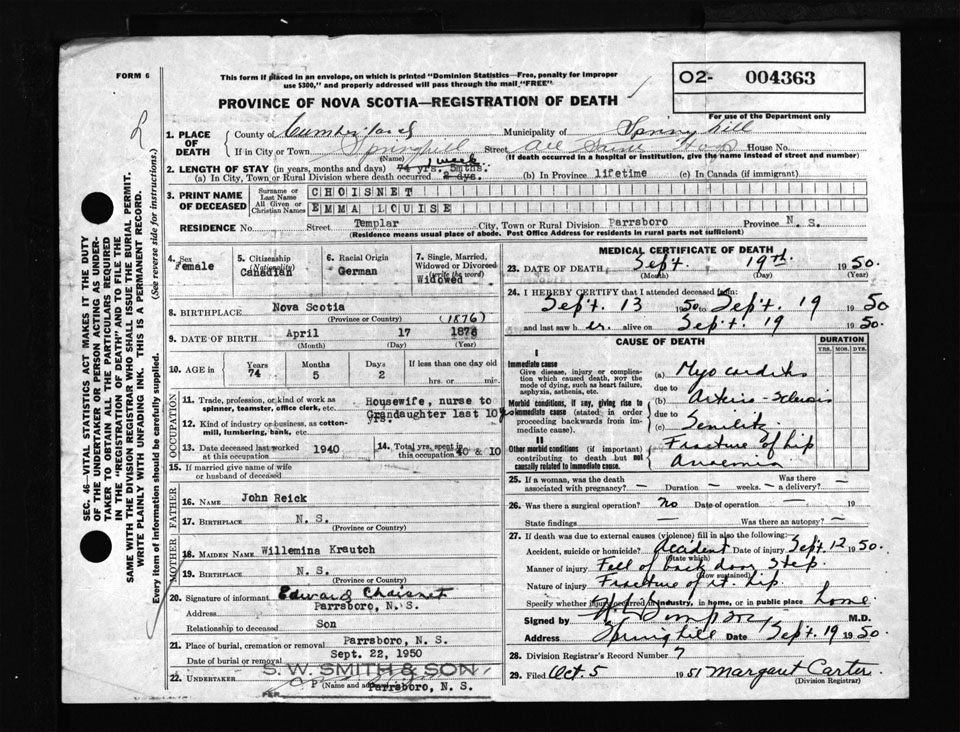 FORM 6
This form if placed in an envelope, on which is printed "Dominion Statistics—Free, penalty for improper
use $300," and properly addressed will pass through the mail "FREE"
O2- 004363
For use of the Department only
PROVINCE OF NOVA SCOTIA—REGISTRATION OF DEATH
SEC. 46—VITAL STATISTICS ACT MAKES IT THE DUTY
OF THE UNDERTAKER OR PERSON ACTING AS UNDER-
TAKER TO OBTAIN ALL THE PARTICULARS REQUIRED
IN THE "REGISTRATION OF DEATH" AND TO FILE THE
SAME WITH THE DIVISION REGISTRAR WHO SHALL ISSUE THE BURIAL PERMIT.
WRITE PLAINLY WITH UNFADING INK. THIS IS A PERMANENT RECORD.
Every item of information should be carefully supplied. (See reverse side for instructions.)
1. PLACE OF DEATH
County of Cumberland Municipality of Springhill
If in City or Town Springhill Street All Saints Hosp House No.
(Name) (If death occurred in a hospital or institution, give the name instead of street and number)
1 week
2. LENGTH OF STAY (in years, months and days) 74 yrs. 5mths.
(a) In City, Town or Rural Division where death occurred 2 dys. (b) In Province lifetime (c) In Canada (if immigrant)
3. PRINT NAME OF DECEASED
Surname or Last Name CHOISNET
All Given or Christian Names EMMA LOUISE
RESIDENCE No. Street Templar City, Town or Rural Division Parrsboro Province N. S.
(Residence means usual place of abode. Post Office Address for residents in rural parts not sufficient)
4. Sex Female
5. Citizenship (Nationality) Canadian
6. Racial Origin German
7. Single, Married, Widowed or Divorced (write the word) Widowed
8. BIRTHPLACE Nova Scotia
(Province or Country) (1876)
9. DATE OF BIRTH April 17 1876
(Month) (Day) (Year)
10. AGE in Years 74 Months 5 Days 2 If less than one day old
hrs. or min.
OCCUPATION
11. Trade, profession, or kind of work as spinner, teamster, office clerk, etc. Housewife, nurse to
Grandaughter last 10
yrs.
12. Kind of industry or business, as cotton-mill, lumbering, bank, etc.
13. Date deceased last worked at this occupation 1940
14. Total yrs. spent in this occupation 40 & 10
15. If married give name of wife or husband of deceased
FATHER
16. NAME John Reick
17. BIRTHPLACE N. S.
(Province or Country)
MOTHER
18. MAIDEN NAME Willemina Krautch
19. BIRTHPLACE N. S.
(Province or Country)
20. Signature of informant Edward Choisnet
Address Parrsboro, N. S.
Relationship to deceased Son
21. Place of burial, cremation or removal Parrsboro, N. S.
Date of burial or removal Sept. 22, 1950
S. W. SMITH & SON
22. UNDERTAKER
(Name and address)
PER Parrsboro, N. S.
MEDICAL CERTIFICATE OF DEATH
23. DATE OF DEATH Sept. 19th 1950.
(Month) (Day) (Year)
24. I HEREBY CERTIFY that I attended deceased from:
Sept. 13 1950 to Sept. 19 1950
and last saw her alive on Sept. 19 1950.
CAUSE OF DEATH DURATION
YRS. MOS. DYS.
I
Immediate cause
Give disease, injury or complication which caused death, not the mode of dying, such as heart failure, asphyxia, asthenia, etc.
(a) Myocarditis
due to
Morbid conditions, if any, giving rise to immediate cause (stated in order proceeding backwards from immediate cause).
(b) Arterio-sclerosis
due to
(c) Senility
II
Other morbid conditions (if important) contributing to death but not causally related to immediate cause.
Fracture of hip
Anaemia
25. If a woman, was the death associated with pregnancy? — Duration — weeks. Was there a delivery? —
26. Was there a surgical operation? no Date of operation 19
State findings — Was there an autopsy? —
27. If death was due to external causes (violence) fill in also the following:
Accident, suicide or homicide? Accident Date of injury Sept. 12 1950.
(State which)
Manner of injury Fall off back door step.
(How sustained)
Nature of injury Fracture of rt. hip.
Specify whether injury occurred in industry, in home, or in public place home
Signed by M.D.
Address Springhill Date Sept. 19 1950
28. Division Registrar's Record Number 7
29. Filed Oct. 5 1951 Margaret Carter
(Division Registrar)